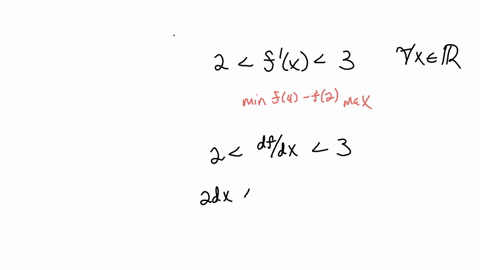 2 < f'(x) < 3 ∀x∈ℝ
min f(4) - f(2) max
2 < df/dx < 3
2dx